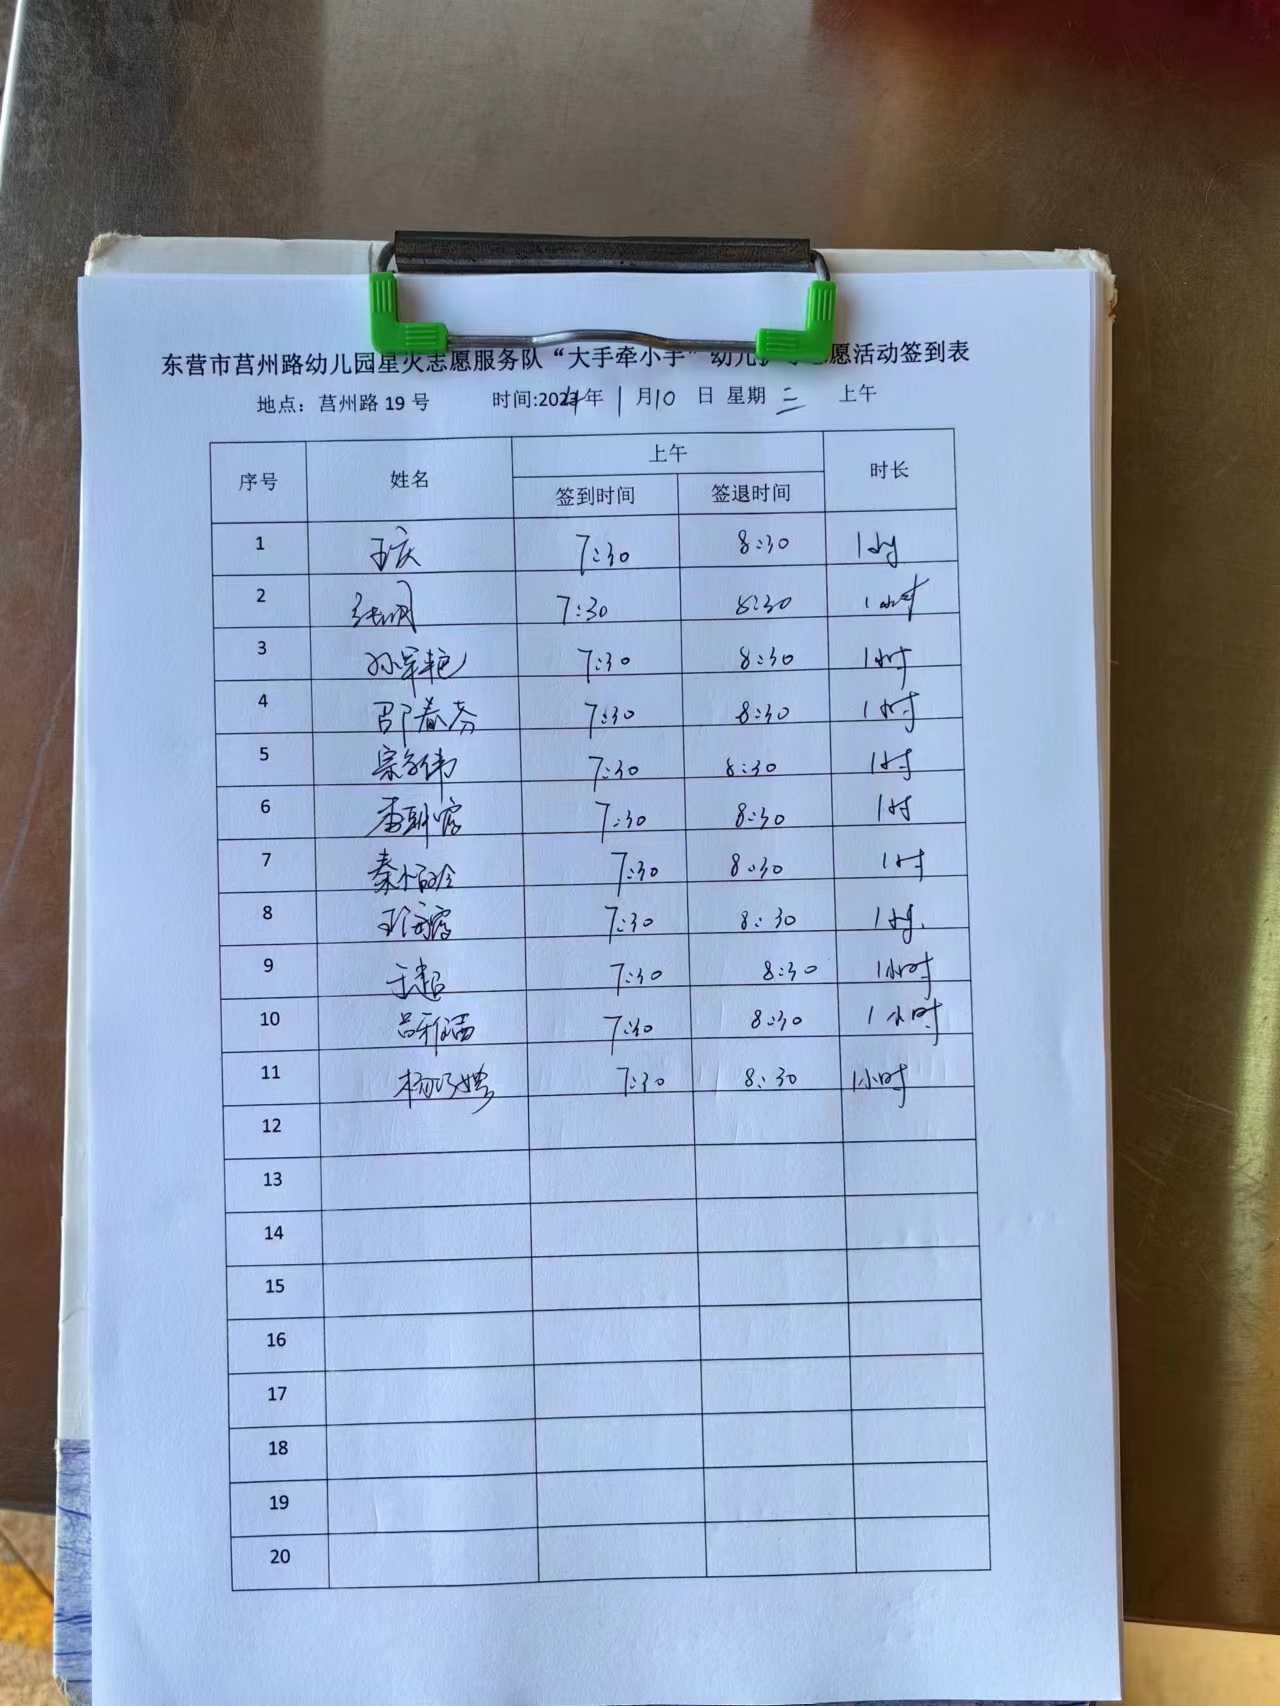 东营市莒州路幼儿园星火志愿服务队“大手牵小手”幼儿 志愿活动签到表
地点：莒州路 19 号 时间:2024年 1 月 10 日 星期 三 上午
序号 姓名 上午 时长
签到时间 签退时间
1 王庆 7:30 8:30 1小时
2 7:30 8:30 1小时
3 孙军艳 7:30 8:30 1小时
4 邵春芬 7:30 8:30 1小时
5 宗 伟 7:30 8:30 1时
6 7:30 8:30 1时
7 秦 玲 7:30 8:30 1时
8 王 霞 7:30 8:30 1小时
9 于超 7:30 8:30 1小时
10 吕雅洁 7:30 8:30 1小时
11 杨巧娉 7:30 8:30 1小时
12
13
14
15
16
17
18
19
20